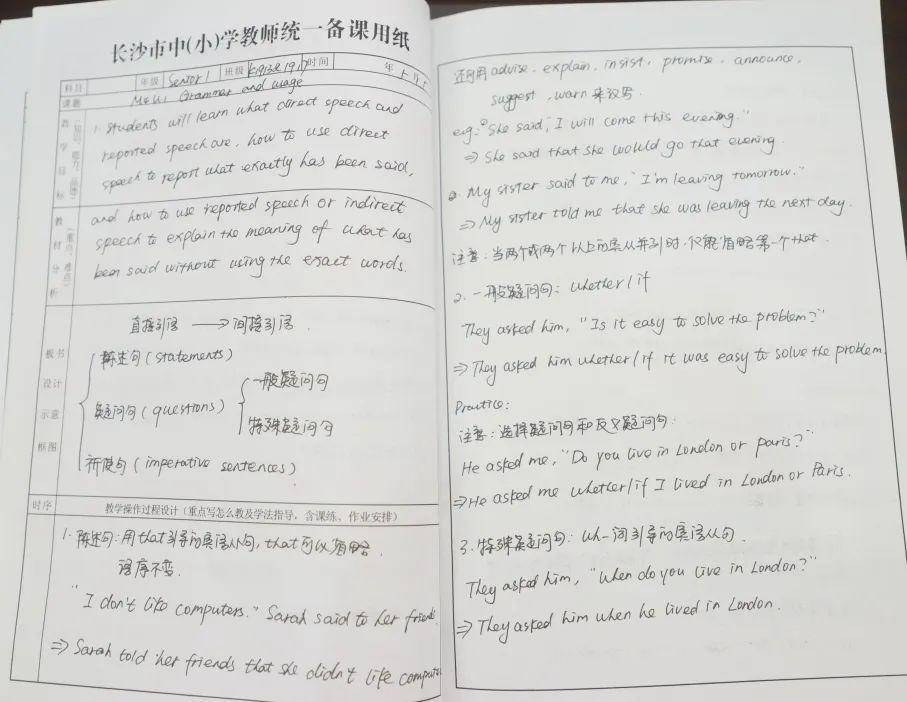 长沙市中(小)学教师统一备课用纸
科目 年级 Senior 1 班级 时间 年 月
课题 Grammar and usage
教学目标
1. Students will learn what direct speech and
reported speech are, how to use direct
speech to report what exactly has been said,
教材分析(重点、难点)
and how to use reported speech or indirect
speech to explain the meaning of what has
been said without using the exact words.
板书设计示意框图
直接引语 → 间接引语.
陈述句 (statements)
疑问句 (questions)
一般疑问句
特殊疑问句
祈使句 (imperative sentences)
时序 教学操作过程设计(重点写怎么教及学法指导,含课练、作业安排)
1. 陈述句: 用that引导的宾语从句, that可以省略.
语序不变.
"I don't like computers." Sarah said to her friends.
⇒ Sarah told her friends that she didn't like computers
还可用 advise, explain, insist, promise, announce,
suggest, warn 来改写.
eg: ① She said, "I will come this evening."
⇒ She said that she would go that evening.
②. My sister said to me, "I'm leaving tomorrow."
⇒ My sister told me that she was leaving the next day.
注意: 当两个或两个以上的宾从并列时, 仅能省略第一个that.
2. 一般疑问句: whether/if
They asked him, "Is it easy to solve the problem?"
⇒ They asked him whether/if it was easy to solve the problem.
Practice:
注意: 选择疑问句和反义疑问句:
He asked me, "Do you live in London or Paris?"
⇒ He asked me whether/if I lived in London or Paris.
3. 特殊疑问句: wh-词引导的宾语从句.
They asked him, "When do you live in London?"
⇒ They asked him when he lived in London.